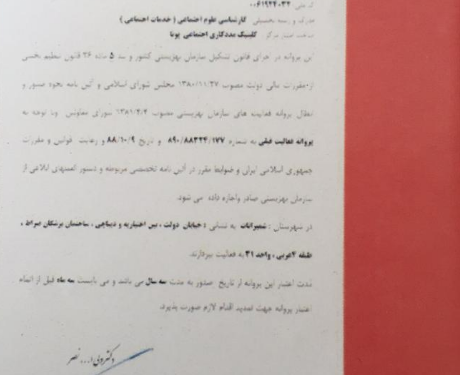 کد ملی ۰۰۶۱۹۲۴۰۳۲
مدرک و رشته تحصیلی کارشناسی علوم اجتماعی ( خدمات اجتماعی )
کلینیک مددکاری اجتماعی پونا
این پروانه در اجرای قانون تشکیل سازمان بهزیستی کشور و بند ۵ ماده ۲۶ قانون تنظیم بخشی
از مقررات مالی دولت مصوب ۱۳۸۰/۱۱/۲۷ مجلس شورای اسلامی و آئین نامه نحوه صدور و
ابطال پروانه فعالیت های سازمان بهزیستی مصوب ۱۳۸۱/۴/۴ شورای معاونین وبا توجه به
پروانه فعالیت قبلی به شماره ۸۹۰/۸۸۳۲۴/۱۷۷ و تاریخ ۸۸/۱۰/۹ و رعایت قوانین و مقررات
جمهوری اسلامی ایران و ضوابط مقرر در آئین نامه تخصصی مربوطه و دستور العملهای ابلاغی از
سازمان بهزیستی صادر واجازه داده می شود.
در شهرستان : شمیرانات به نشانی : خیابان دولت ، بین اختیاریه و دیباجی ، ساختمان پزشکان صراط ،
طبقه ۴غربی ، واحد ۳۱ به فعالیت بپردازند.
مدت اعتبار این پروانه از تاریخ صدور به مدت سه سال می باشد و می بایست سه ماه قبل از اتمام
اعتبار پروانه جهت تمدید اقدام لازم صورت پذیرد.